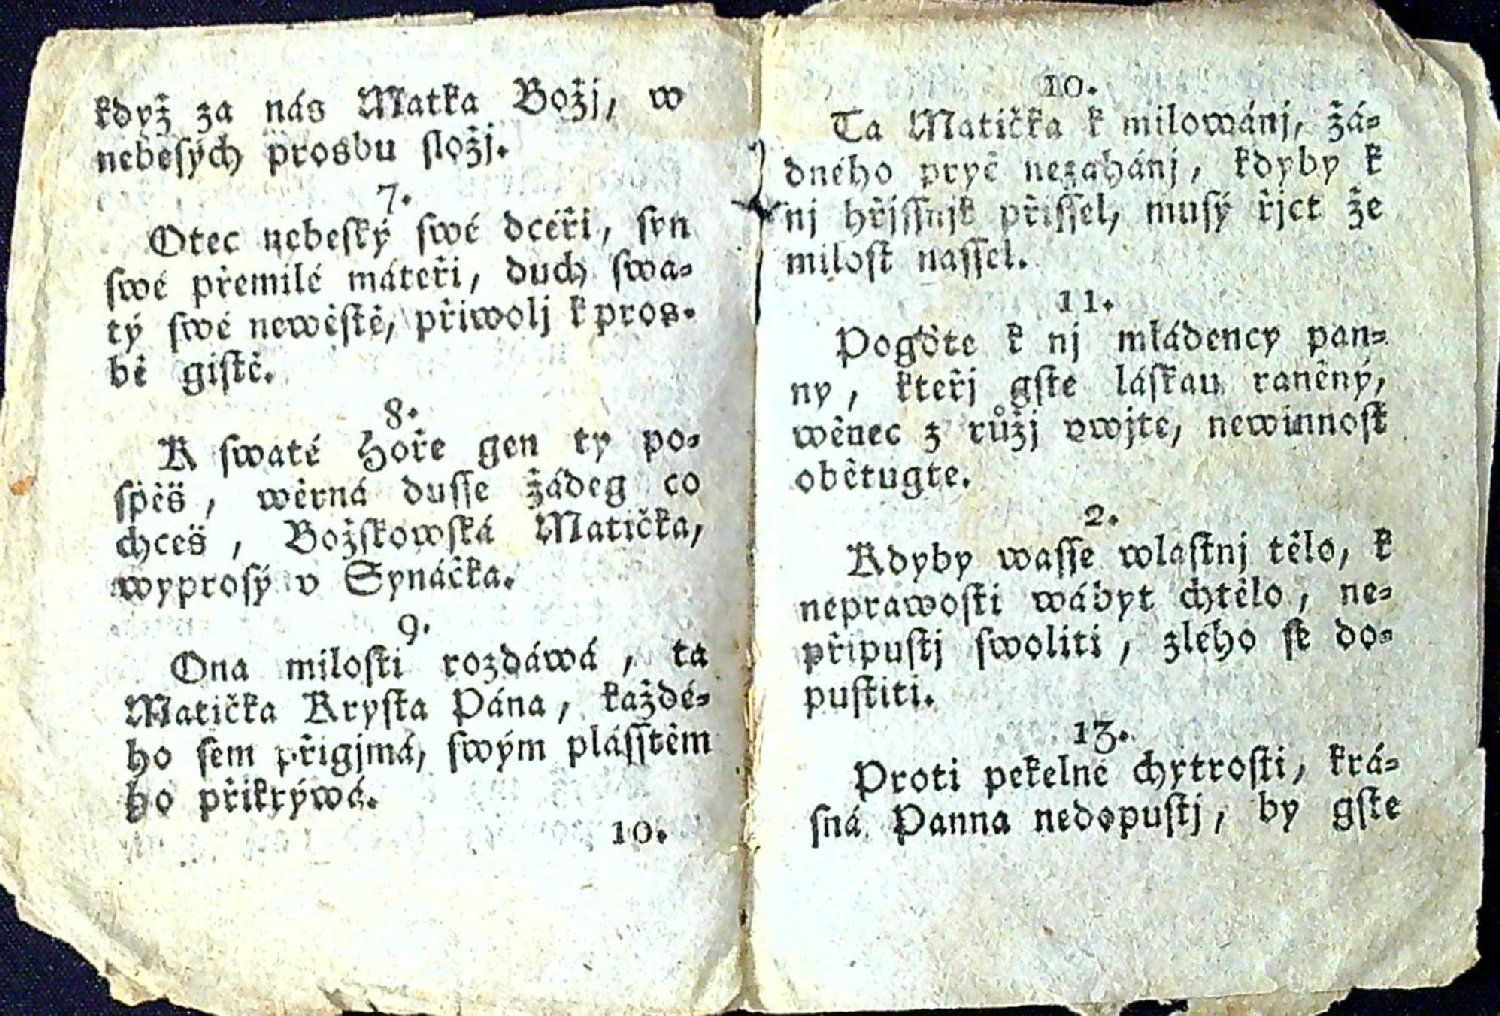 když za nás Matka Božj, w
nebesých prosbu složj.
7.
Otec nebeský swé dceři, syn
swé přemilé máteři, duch swa-
tý swé newěstě, přiwolj k pros-
bě gistě.
8.
K swaté Hoře gen ty po-
spěš, wěrná dusse žádeg co
chceš, Božskowská Matička,
wyprosý v Synáčka.
9.
Ona milosti rozdáwá, ta
Matička Krysta Pána, každé-
ho sem přigjmá, swým plásstěm
ho přikrýwá.
10.
10.
Ta Matička k milowánj, žá-
dného pryč nezahánj, kdyby k
nj hřjssnjk přissel, musý řjct že
milost nassel.
11.
Pogďte k nj mládency pan-
ny, kteřj gste láskau raněný,
wěnec z růžj vwjte, newinnost
obětugte.
2.
Kdyby wasse wlastnj tělo, k
neprawosti wábyt chtělo, ne-
připustj swoliti, zlého se do-
pustiti.
13.
Proti pekelné chytrosti, krá-
sná Panna nedopustj, by gste